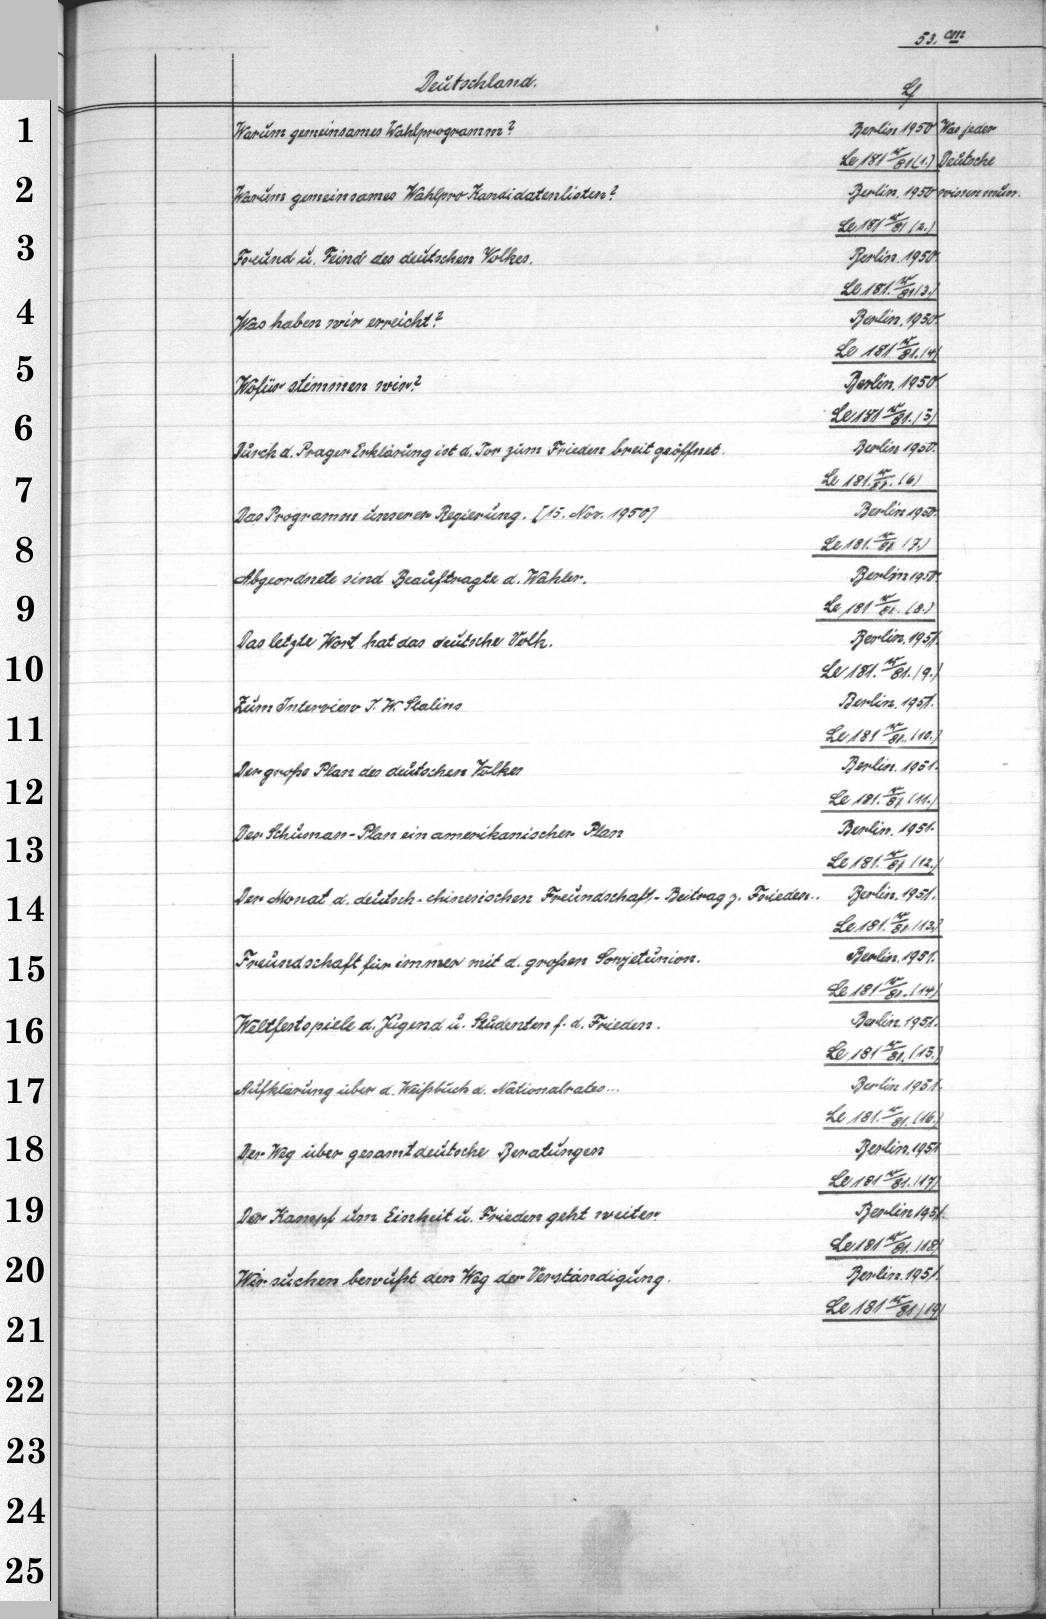 53. cm
Deutschland. Lf
1
Warum gemeinsames Wahlprogramm? Berlin 1950 Was jeder
Le 181 w/81 (1.) Deutsche
2
Warum gemeinsames Wahlpro Kandidatenlisten? Berlin. 1950 wissen muss.
Le 181 w/81 (2.)
3
Freund u. Feind des deutschen Volkes. Berlin. 1950.
Le 181. w/81 (3.)
4
Was haben wir erreicht? Berlin. 1950.
Le 181 w/81. (4)
5
Wofür stimmen wir? Berlin. 1950
6
Le 181 w/81. (5)
Durch d. Prager Erklärung ist d. Tor zum Frieden breit geöffnet. Berlin 1950.
7
Le 181. w/81. (6)
Das Programm unserer Regierung. [15. Nov. 1950] Berlin 1950.
8
Le 181. w/81 (7.)
Abgeordnete sind Beauftragte d. Wähler. Berlin 1950.
9
Le 181 w/81. (8.)
Das letzte Wort hat das deutsche Volk. Berlin. 1951.
10
Le 181. w/81. (9.)
Zum Interview J. W. Stalins Berlin. 1951.
11
Le 181 w/81. (10.)
Der große Plan des deutschen Volkes Berlin. 1951.
12
Le 181. w/81 (11.)
Der Schuman-Plan ein amerikanischer Plan Berlin. 1951.
13
Le 181. w/81 (12.)
Der Monat d. deutsch-chinesischen Freundschaft,- Beitrag z. Frieden.. Berlin. 1951.
14
Le 181. w/81 (13.)
Freundschaft für immer mit d. großen Sowjetunion. Berlin. 1951.
15
Le 181 w/81. (14)
Weltfestspiele d. Jugend u. Studenten f. d. Frieden. Berlin. 1951.
16
Le 181 w/81. (15.)
Aufklärung über d. Weißbuch d. Nationalrates... Berlin 1951.
17
Le 181. w/81. (16.)
18
Der Weg über gesamtdeutsche Beratungen Berlin. 1951
Le 181 w/81. (17)
19
Der Kampf um Einheit u. Frieden geht weiter Berlin 1951.
Le 181 w/81. (18)
20
Wir suchen bewußt den Weg der Verständigung. Berlin. 1951.
Le 181 w/81 (19)
21
22
23
24
25